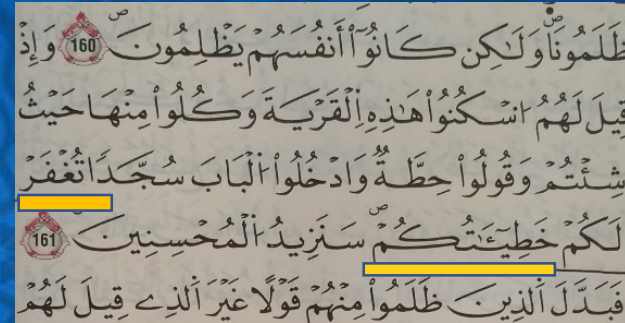 ظَلَمُونَا وَلَٰكِن كَانُوٓا۟ أَنفُسَهُمْ يَظْلِمُونَ 160 وَإِذْ
قِيلَ لَهُمُ اُ۟سْكُنُوا۟ هَٰذِهِ اِ۬لْقَرْيَةَ وَكُلُوا۟ مِنْهَا حَيْثُ
شِئْتُمْ وَقُولُوا۟ حِطَّةٌ وَادْخُلُوا۟ اُ۬لْبَابَ سُجَّدًا تُغْفَرْ
لَكُمْ خَطِيٓـَٰٔتُكُمْ سَنَزِيدُ اُ۬لْمُحْسِنِينَ 161
فَبَدَّلَ اَ۬لَّذِينَ ظَلَمُوا۟ مِنْهُمْ قَوْلًا غَيْرَ اَ۬لَّذِے قِيلَ لَهُمْ